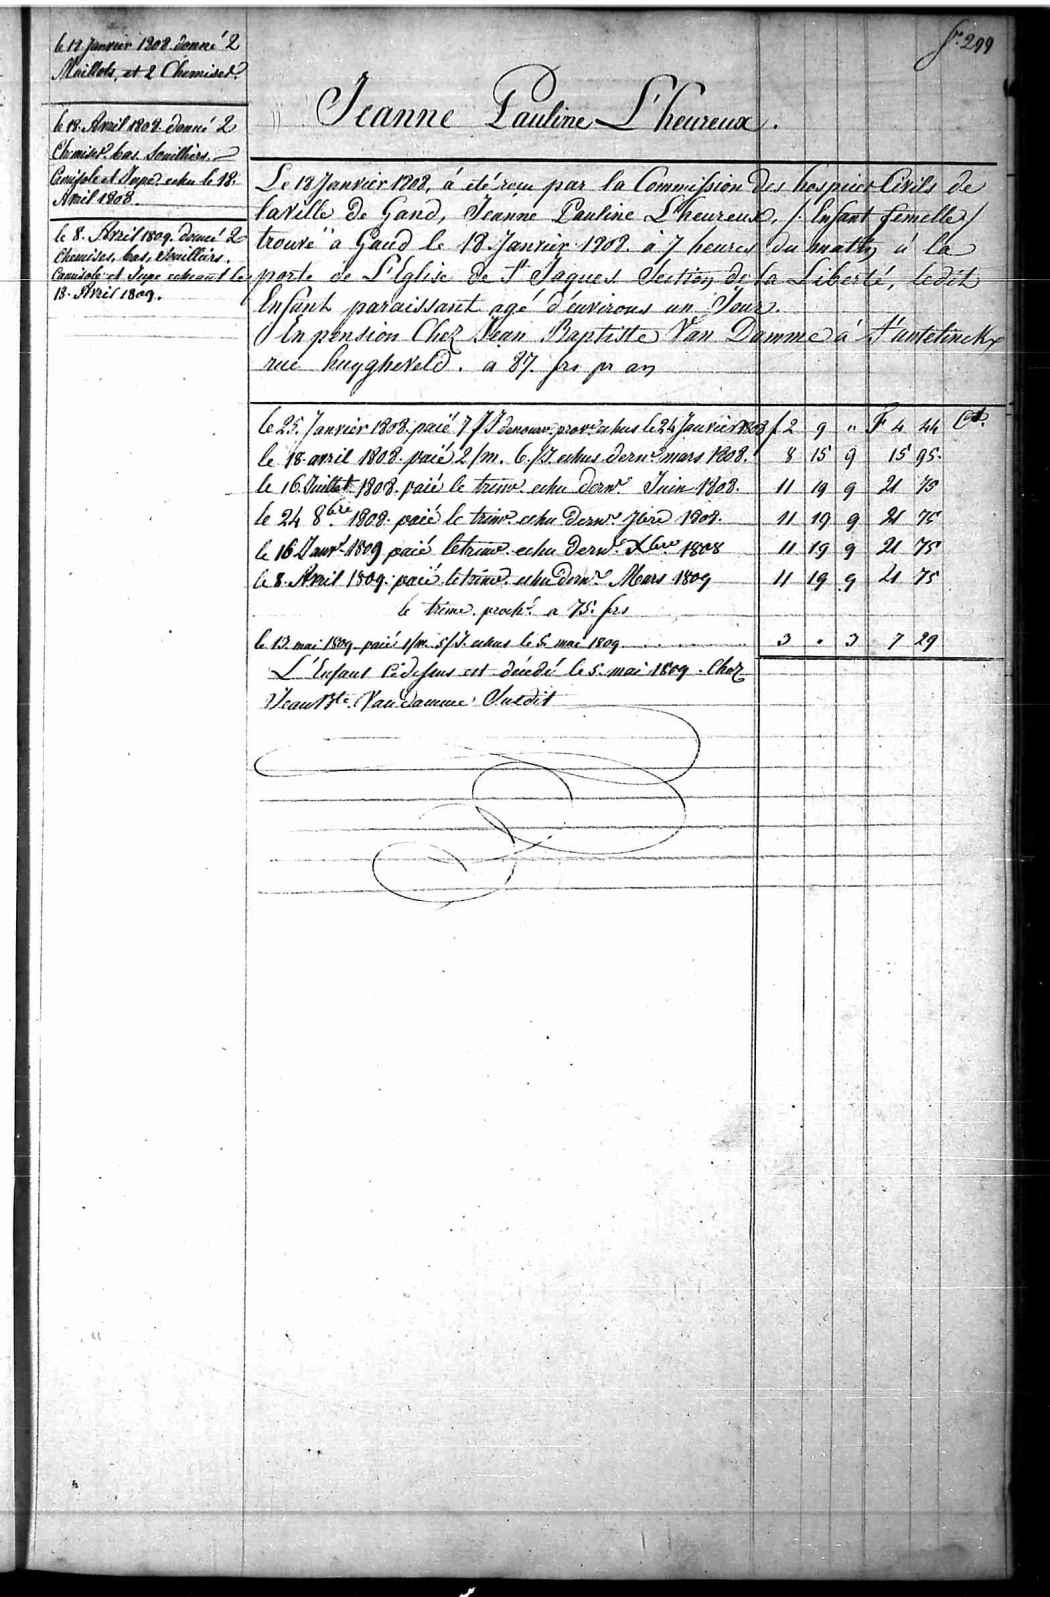 fo. 299
le 18 Janvier 1808. donné 2
Maillots, et 2 Chemises
le 18. Avril 1808. donné 2
Chemises. bas. Souilliers.
Camisole et Jupe echu le 18.
Avril 1808.
le 8. Avril 1809. donné 2
Chemises, bas, Souilliers.
Camisole et Jupe echeant le
18. Avril 1809.
Jeanne Pauline L'heureux.
Le 18 Janvier 1808. á été reçu par la Commission des hospices Civils de
la ville de Gand, Jeanne Pauline L'heureux, /: Enfant femelle /
trouvé à Gand le 18. Janvier 1808. à 7 heures du mattin à la
porte de L'Eglise de St. Jaques. Section de la Liberté, ledit
Enfant paraissant agé d'environs un Jour.
En pension Chez Jean Baptiste Van Damme á
rue huygheveld. a 87. frs pr an
le 25. Janvier 1808. paié 7/J de nourr. prov. echus le 24 Janvier 1808 f 2 9 " F 4 44 Ct.
le 18. avril 1808. paié 2/m. 6/J echus dernr. mars 1808. 8 15 9 15 95.
le 16. Juillet 1808. paié le trime. echu dernr. Juin 1808. 11 19 9 21 75
le 24 8bre. 1808. paié le trime. echu dernr. 7bre 1808. 11 19 9 21 75
le 16. Janvr. 1809 paié le trime. echu dernr. Xbre 1808 11 19 9 21 75
le 8. Avril 1809. paié le trime. echu dernr. Mars 1809 11 19 9 21 75
le trime. proch. a 75. frs
le 13. mai 1809. paié 1/m. 5/J. echus le 5. mai 1809 3 " 3 7 29
L'Enfant Cidessus est décédé le 5. mai 1809. Chez
Jean Bte. Van damme Susdit